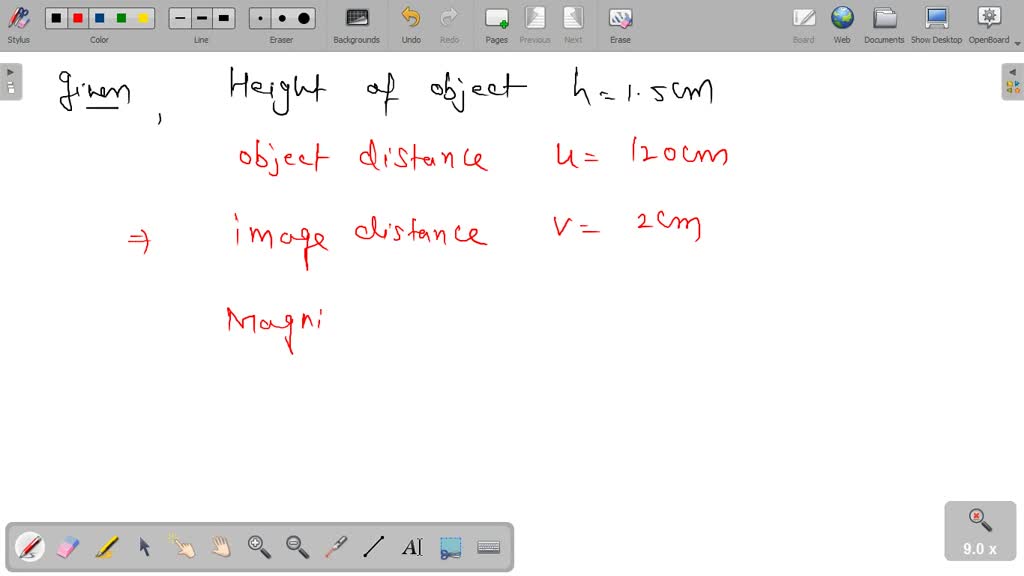 Stylus Color Line Eraser Backgrounds Undo Redo Pages Previous Next Erase Board Web Documents Show Desktop OpenBoard
Given, Height of object h = 1.5cm
object distance u = 120cm
⇒ image distance v = 2cm
Magni
9.0 x